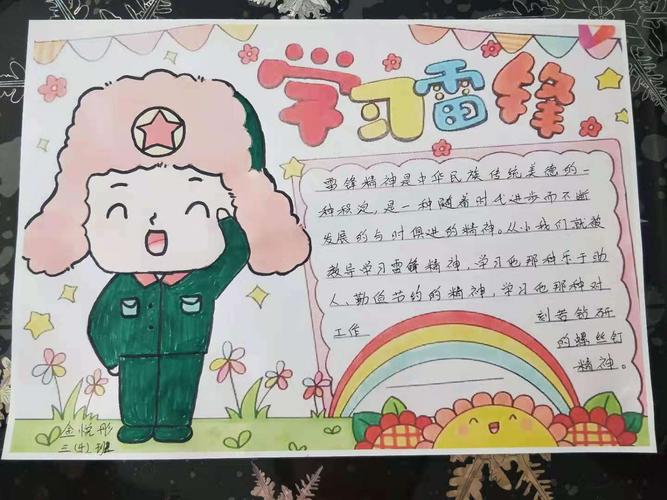 学习雷锋
雷锋精神是中华民族传统美德的一
种积淀,是一种随着时代进步而不断
发展的与时俱进的精神。从小我们就被
教导学习雷锋精神,学习他那种乐于助
人、勤俭节约的精神,学习他那种对
工作
刻苦钻研
的螺丝钉
精神。
金悦彤
三(4)班